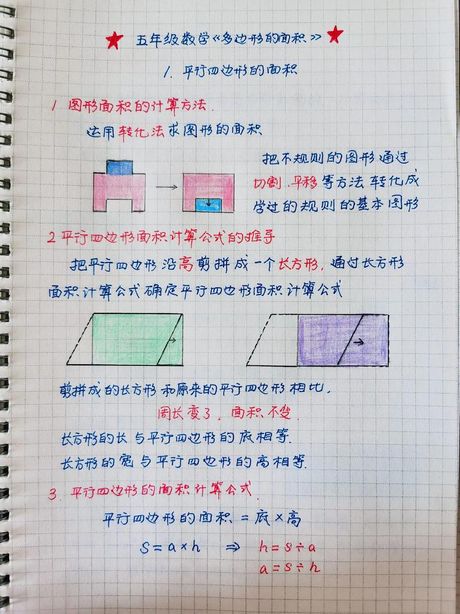 ★ 五年级数学《多边形的面积》 ★
1. 平行四边形的面积
1 图形面积的计算方法.
运用转化法求图形的面积
把不规则的图形通过
切割.平移等方法转化成
学过的规则的基本图形
2 平行四边形面积计算公式的推导
把平行四边形沿高剪拼成一个长方形,通过长方形
面积计算公式确定平行四边形面积计算公式
剪拼成的长方形和原来的平行四边形相比,
周长变了,面积不变.
长方形的长与平行四边形的底相等.
长方形的宽与平行四边形的高相等.
3. 平行四边形的面积计算公式.
平行四边形的面积 = 底×高
S = a×h ⇒ h = s÷a
a = s÷h